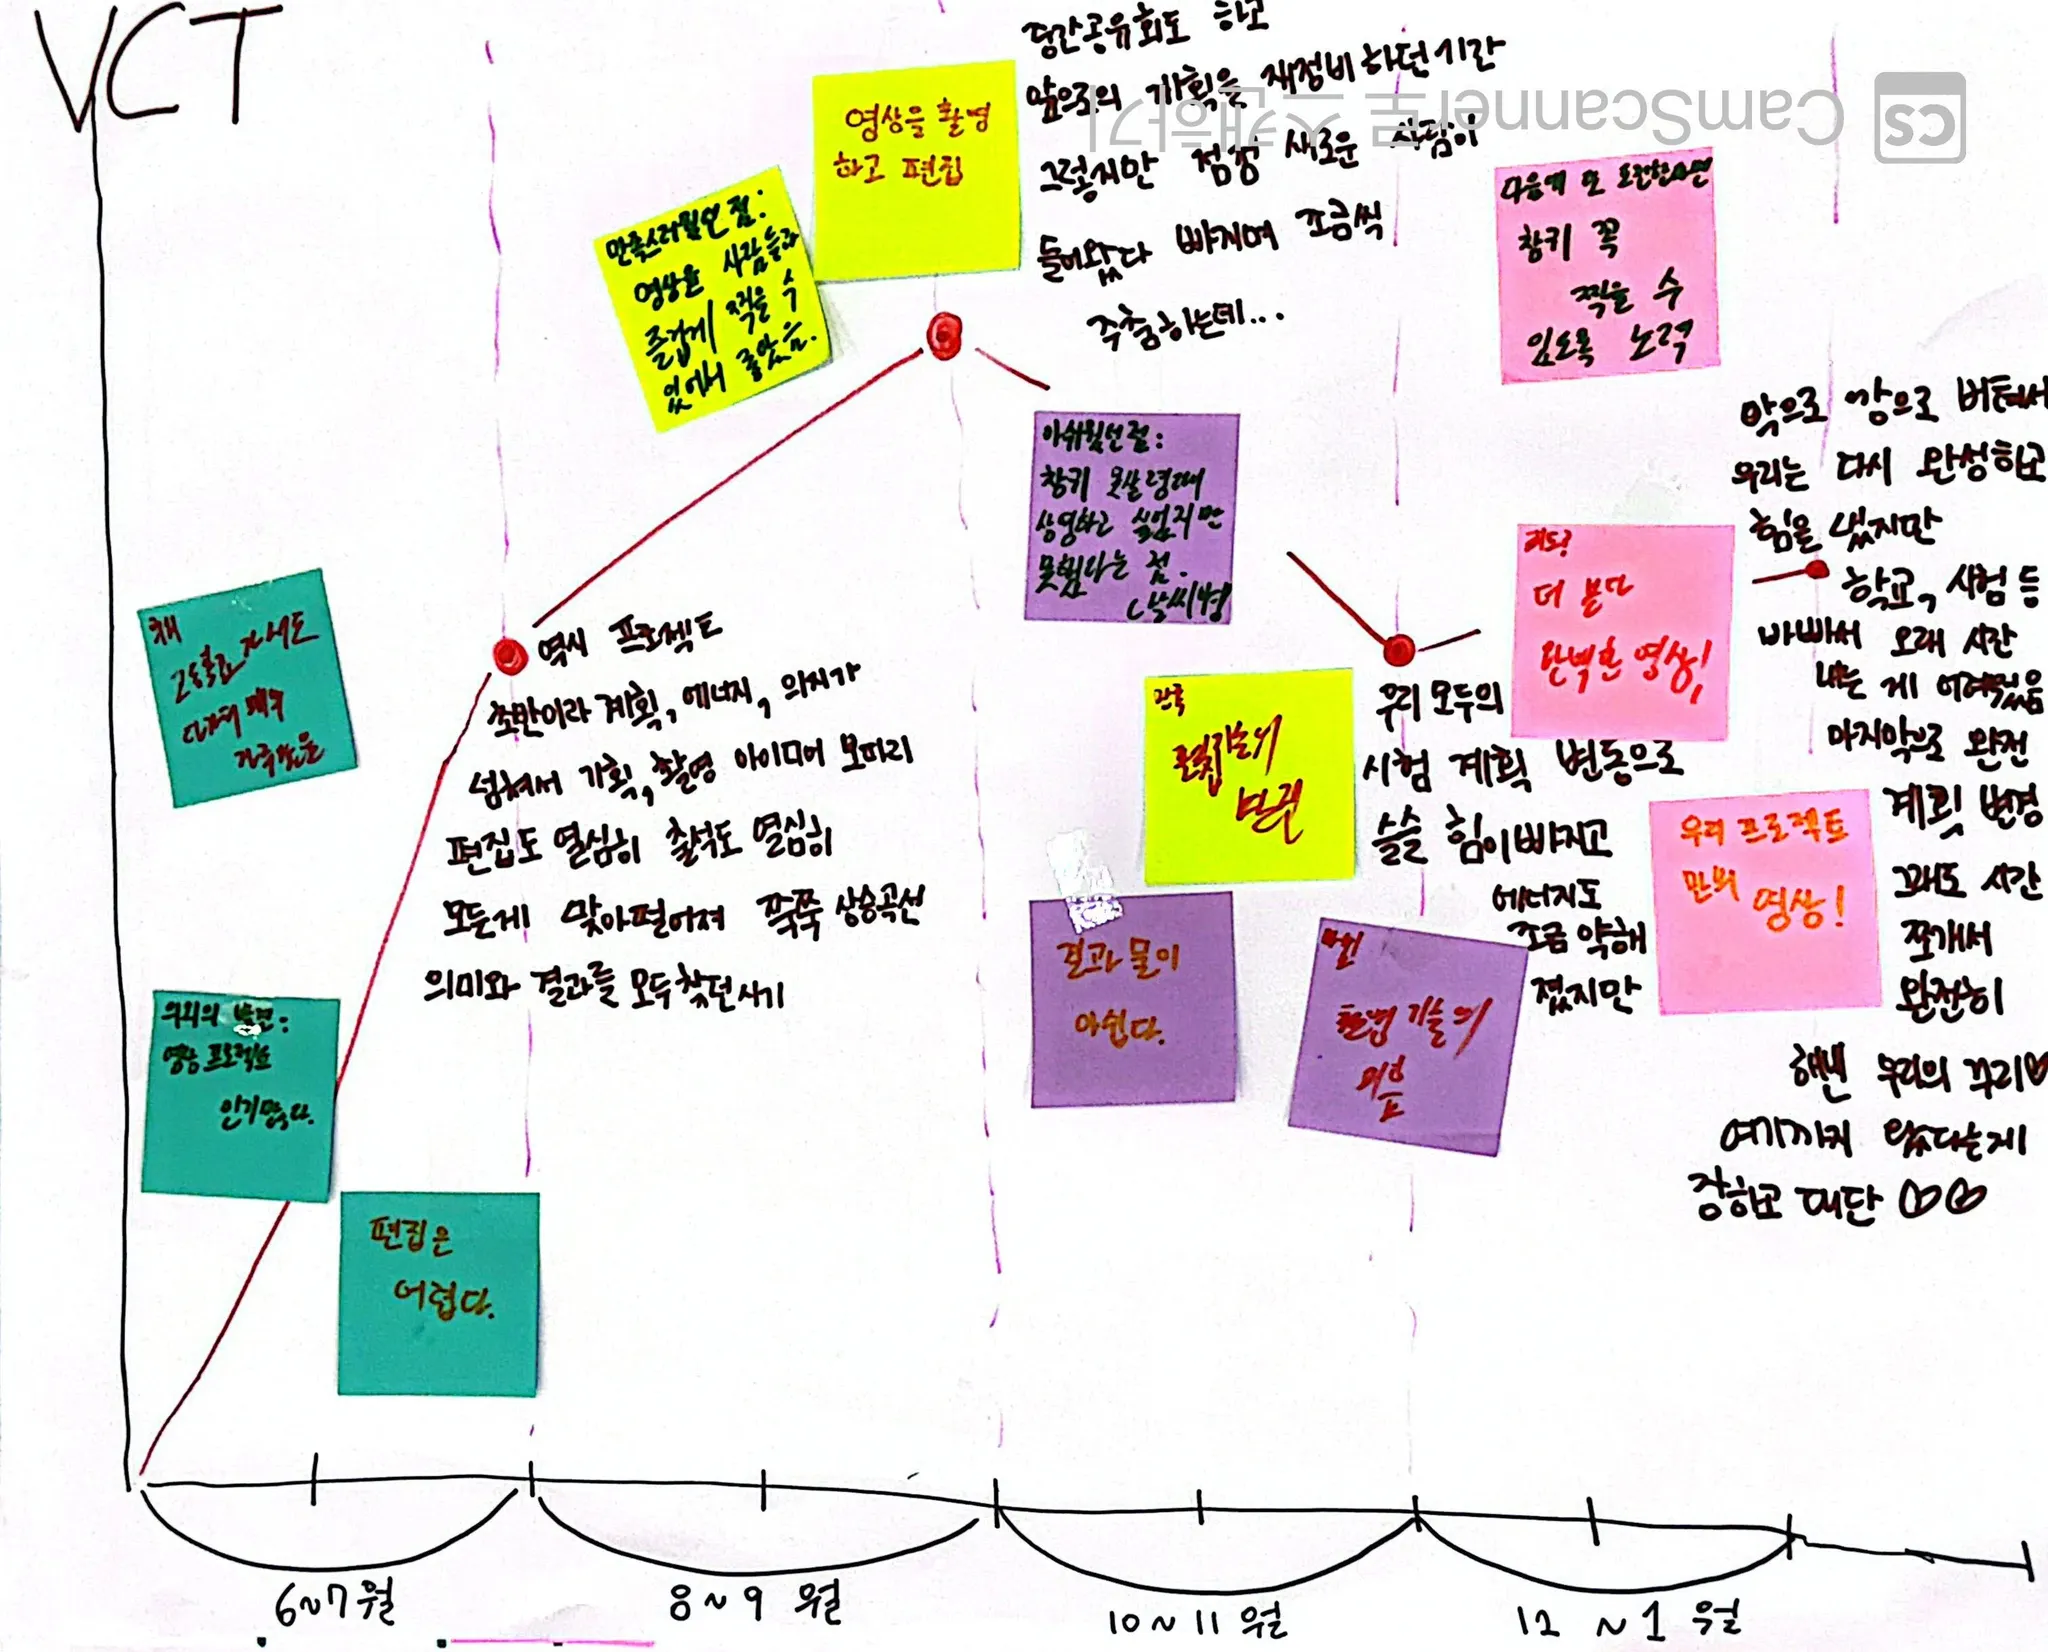 VCT
중간공유회도 하고
앞으로의 기획을 재정비하던기간
그렇지만 점점 새로운 사람이
들어왔다 빠지며 조금씩
주춤하는데...
CamScanner로 스캔하기
CS
영상을 촬영
하고 편집
만족스러웠던 점:
영상을 사람들과
즐겁게 찍을 수
있어서 좋았음.
다음에 또 도전한다면
창키 꼭
찍을 수
있도록 노력
아쉬웠던점:
창키 못살렸때
상영하고 싶었지만
못했다는 점.
막으로 깡으로 버텨서
우리는 다시 완성하고
힘을 냈지만
학교, 시험 등
바빠서 오래 시간
내는 게 어려웠음
마지막으로 완전
계획 변경
그래도 시간
쪼개서
완전히
해낸 우리의 꾸리♡
여기까지 왔다는게
장하고 대단 ♡♡
더 본다
완벽한 영상!
역시 프로젝트
초반이라 계획, 에너지, 의지가
넘쳐서 기획, 촬영 아이디어 보따리
편집도 열심히 출석도 열심히
모든게 맞아떨어져 쭉쭉 상승곡선
의미와 결과를 모두 찾던시기
우리 모두의
시험 계획 변동으로
슬슬 힘이빠지고
에너지도
조금 약해
졌지만
우리 프로젝트
만의 영상!
결과물이
아쉽다.
촬영기술의
의외의 발견:
영상 프로젝트
인기많다.
편집은
어렵다.
6~7월
8~9월
10~11월
12~1월